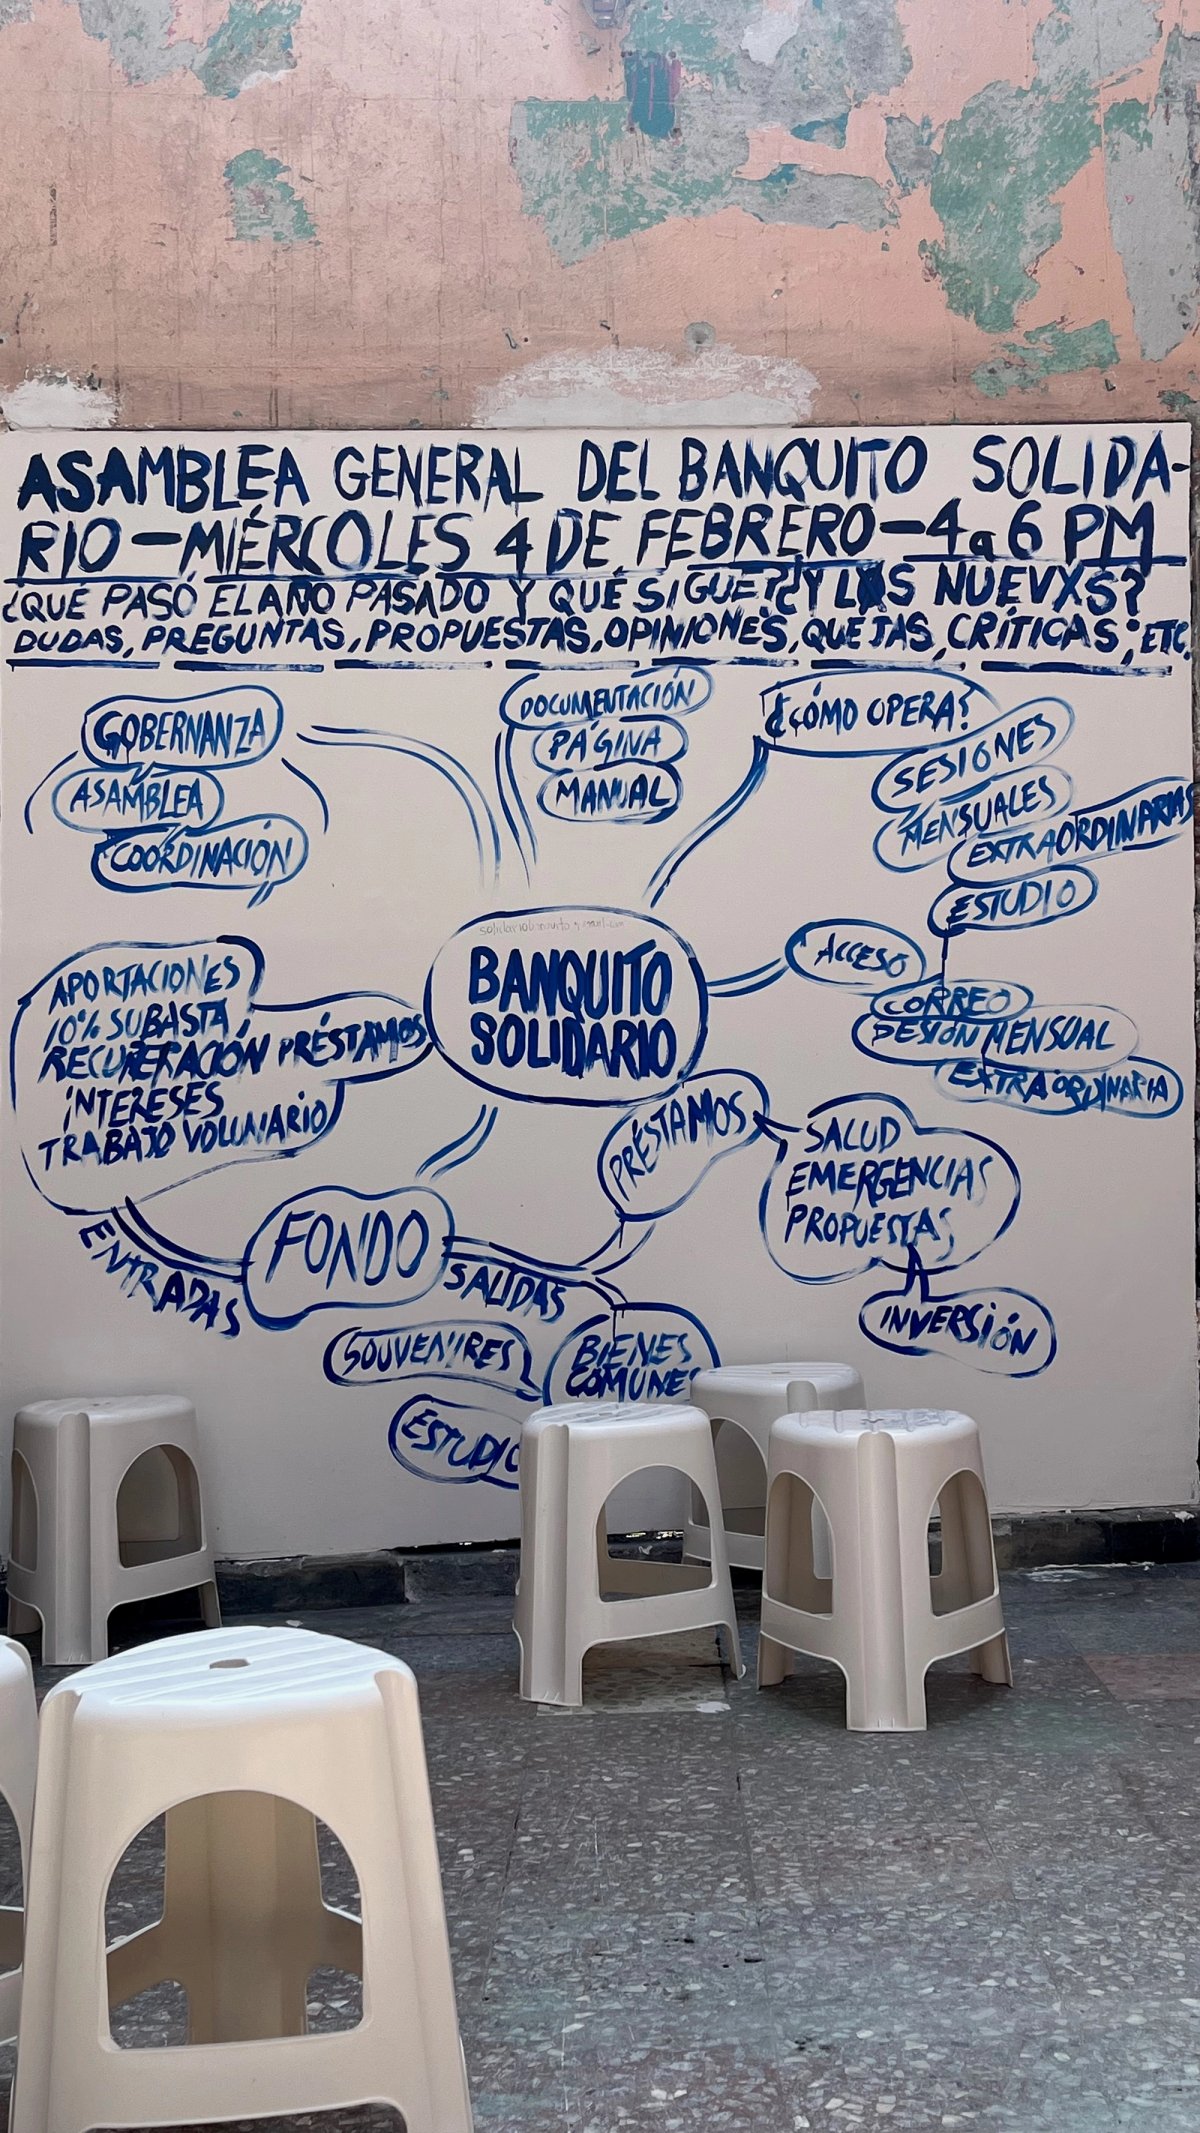 ASAMBLEA GENERAL DEL BANQUITO SOLIDA-
RIO - MIÉRCOLES 4 DE FEBRERO - 4 a 6 PM
¿QUÉ PASÓ EL AÑO PASADO Y QUÉ SIGUE? ¿Y LXS NUEVXS?
DUDAS, PREGUNTAS, PROPUESTAS, OPINIONES, QUEJAS, CRÍTICAS, ETC.
GOBERNANZA
ASAMBLEA
COORDINACIÓN
DOCUMENTACIÓN
PÁGINA
MANUAL
¿CÓMO OPERA?
SESIONES
MENSUALES
EXTRAORDINARIAS
ESTUDIO
ACCESO
CORREO
SESIÓN MENSUAL
EXTRAORDINARIA
BANQUITO
SOLIDARIO
APORTACIONES
10% SUBASTA,
RECUPERACIÓN PRÉSTAMOS
INTERESES
TRABAJO VOLUNTARIO
ENTRADAS
FONDO
SALIDAS
PRÉSTAMOS
SALUD
EMERGENCIAS
PROPUESTAS
INVERSIÓN
BIENES
COMUNES
SOUVENIRES
ESTUDIO